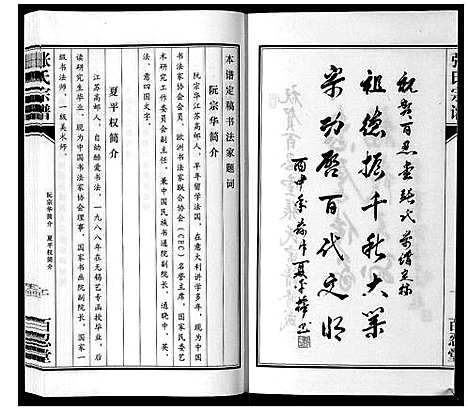 祝贺百忍堂张氏宗谱定稿
祖德振千秋大业
宗功启百代文明
丙申年
夏平权书
张氏宗谱
百忍堂
本谱定稿书法家题词
阮宗华简介
阮宗华江苏高邮人，早年留学法国，在意大利讲学多年，现为中国
书法家协会会员，欧洲书法家联合协会（CEC）名誉主席，国家民委艺
术研究工作委员会副主任，兼中国民族书通院副院长，通晓中、英、
法、意四国文字。
夏平权简介
江苏高邮人，自幼酷爱书法，一九八八年在无锡艺专函授班
读研究生毕业，现为中国书法家协会理事，国家书画院副院长，国家一
级书法师，一级美术师。
阮宗华简介 夏平权简介
张氏宗谱
百忍堂